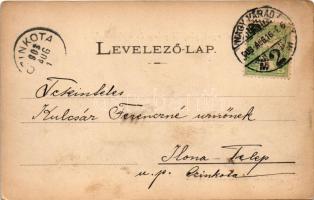 CZINKOTA
903 AUG
LEVELEZŐ-LAP.
NAGYVÁRAD
Tekintetes
Kulcsár Ferenczné urnőnek
Ilona-Telep
u.p. Czinkota